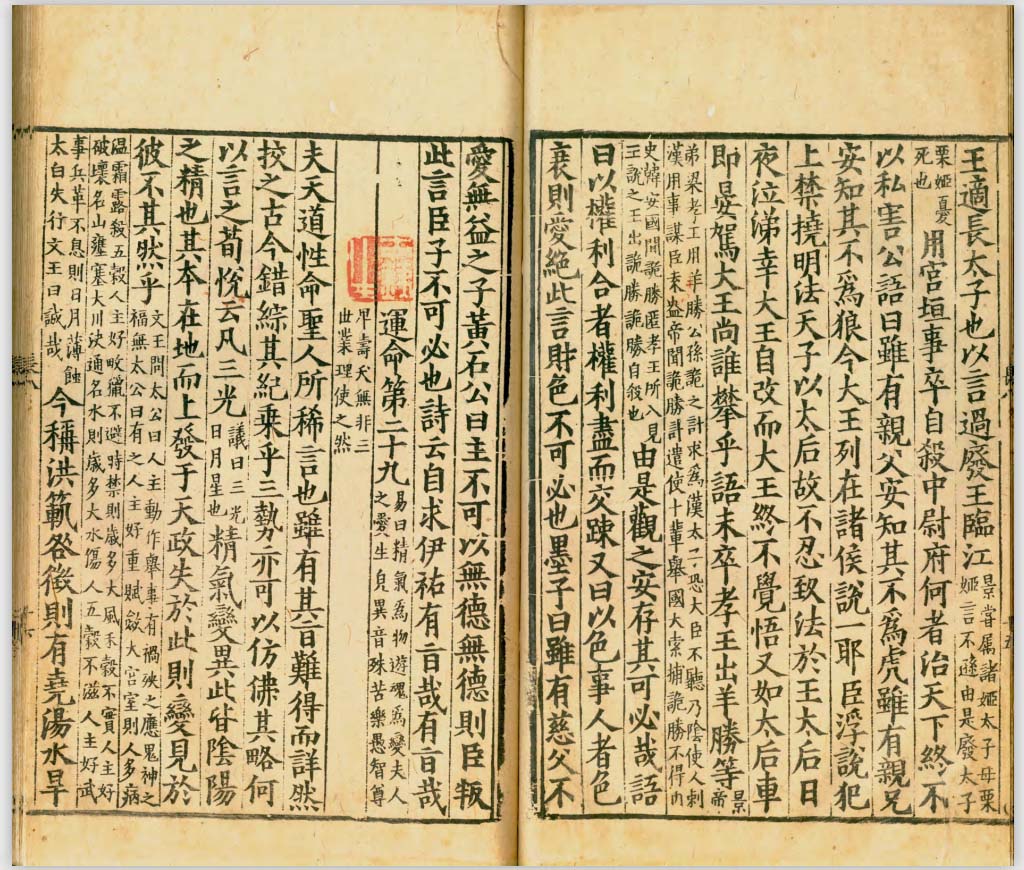 王適長太子也以言過廢王臨江景嘗属諸姬太子母栗
姬言不遜由是廢太子
栗姬憂
死也用宮垣事卒自殺中尉府何者治天下終不
以私害公語曰雖有親父安知其不爲虎雖有親兄
安知其不爲狼今大王列在諸侯說一耶臣浮說犯
上禁撓明法天子以太后故不忍致法於王太后日
夜泣涕幸大王自改而大王終不覺悟又如太后車
即晏駕大王尚誰攀乎語未卒孝王出羊勝等景
帝
弟梁孝王用羊勝公孫詭之計求爲漢太子恐大臣不聽乃陰使人刺
漢用事謀臣袁盎帝聞詭勝計遣使十輩舉國大索捕詭勝不得内
史韓安國聞詭勝匿孝王所入見
王說之王出詭勝詭勝自殺也由是觀之安存其可必哉語
曰以權利合者權利盡而交踈又曰以色事人者色
衰則愛絕此言財色不可必也墨子曰雖有慈父不
愛無益之子黃石公曰主不可以無德無德則臣叛
此言臣子不可必也詩云自求伊祐有旨哉有旨哉
運命第二十九易曰精氣爲物遊魂爲變夫人
之愛生皃異音殊苦樂愚智尊
卑壽夭無非三
世業理使之然
夫天道性命聖人所稀言也雖有其旨難得而詳然
挍之古今錯綜其紀乘乎三勢亦可以仿彿其略何
以言之荀悅云凡三光議曰三光
日月星也精氣變異此皆陰陽
之精也其本在地而上發于天政失於此則變見於
彼不其然乎文王問太公曰人主動作舉事有禍殃之應鬼神之
福無太公曰有之人主好重賦斂大宮室則人多病
温霜露殺五穀人主好畋獵不避時禁則歲多大風禾穀不實人主好
破壞名山壅塞大川決通名水則歲多大水傷人五穀不滋人主好武
事兵革不息則日月薄蝕
太白失行文王曰誠哉今稱洪範咎徵則有堯湯水旱